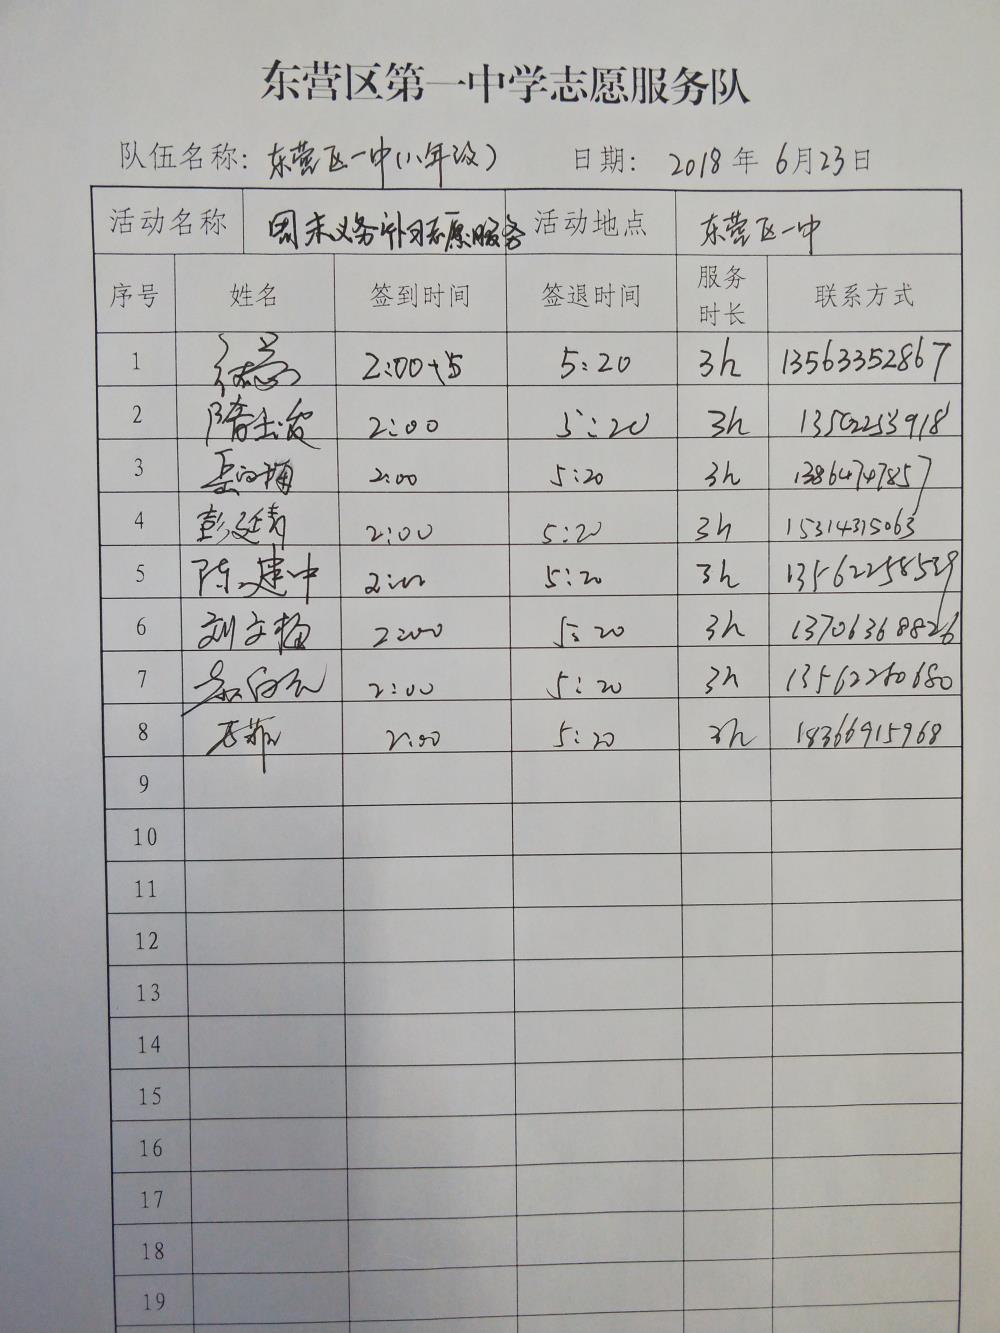 东营区第一中学志愿服务队
队伍名称: 东营区一中(八年级) 日期: 2018年6月23日
活动名称 周末义务补习志愿服务 活动地点 东营区一中
序号 姓名 签到时间 签退时间 服务时长 联系方式
1 2:00 5:20 3h 13563352867
2 2:00 5:20 3h
3 2:00 5:20 3h 13864747857
4 彭廷青 2:00 5:20 3h 15314315063
5 陈建中 2:00 5:20 3h 13562258539
6 刘文梅 2:00 5:20 3h 13706368826
7 2:00 5:20 3h 13562280680
8 2:00 5:20 3h 18366915968
9
10
11
12
13
14
15
16
17
18
19